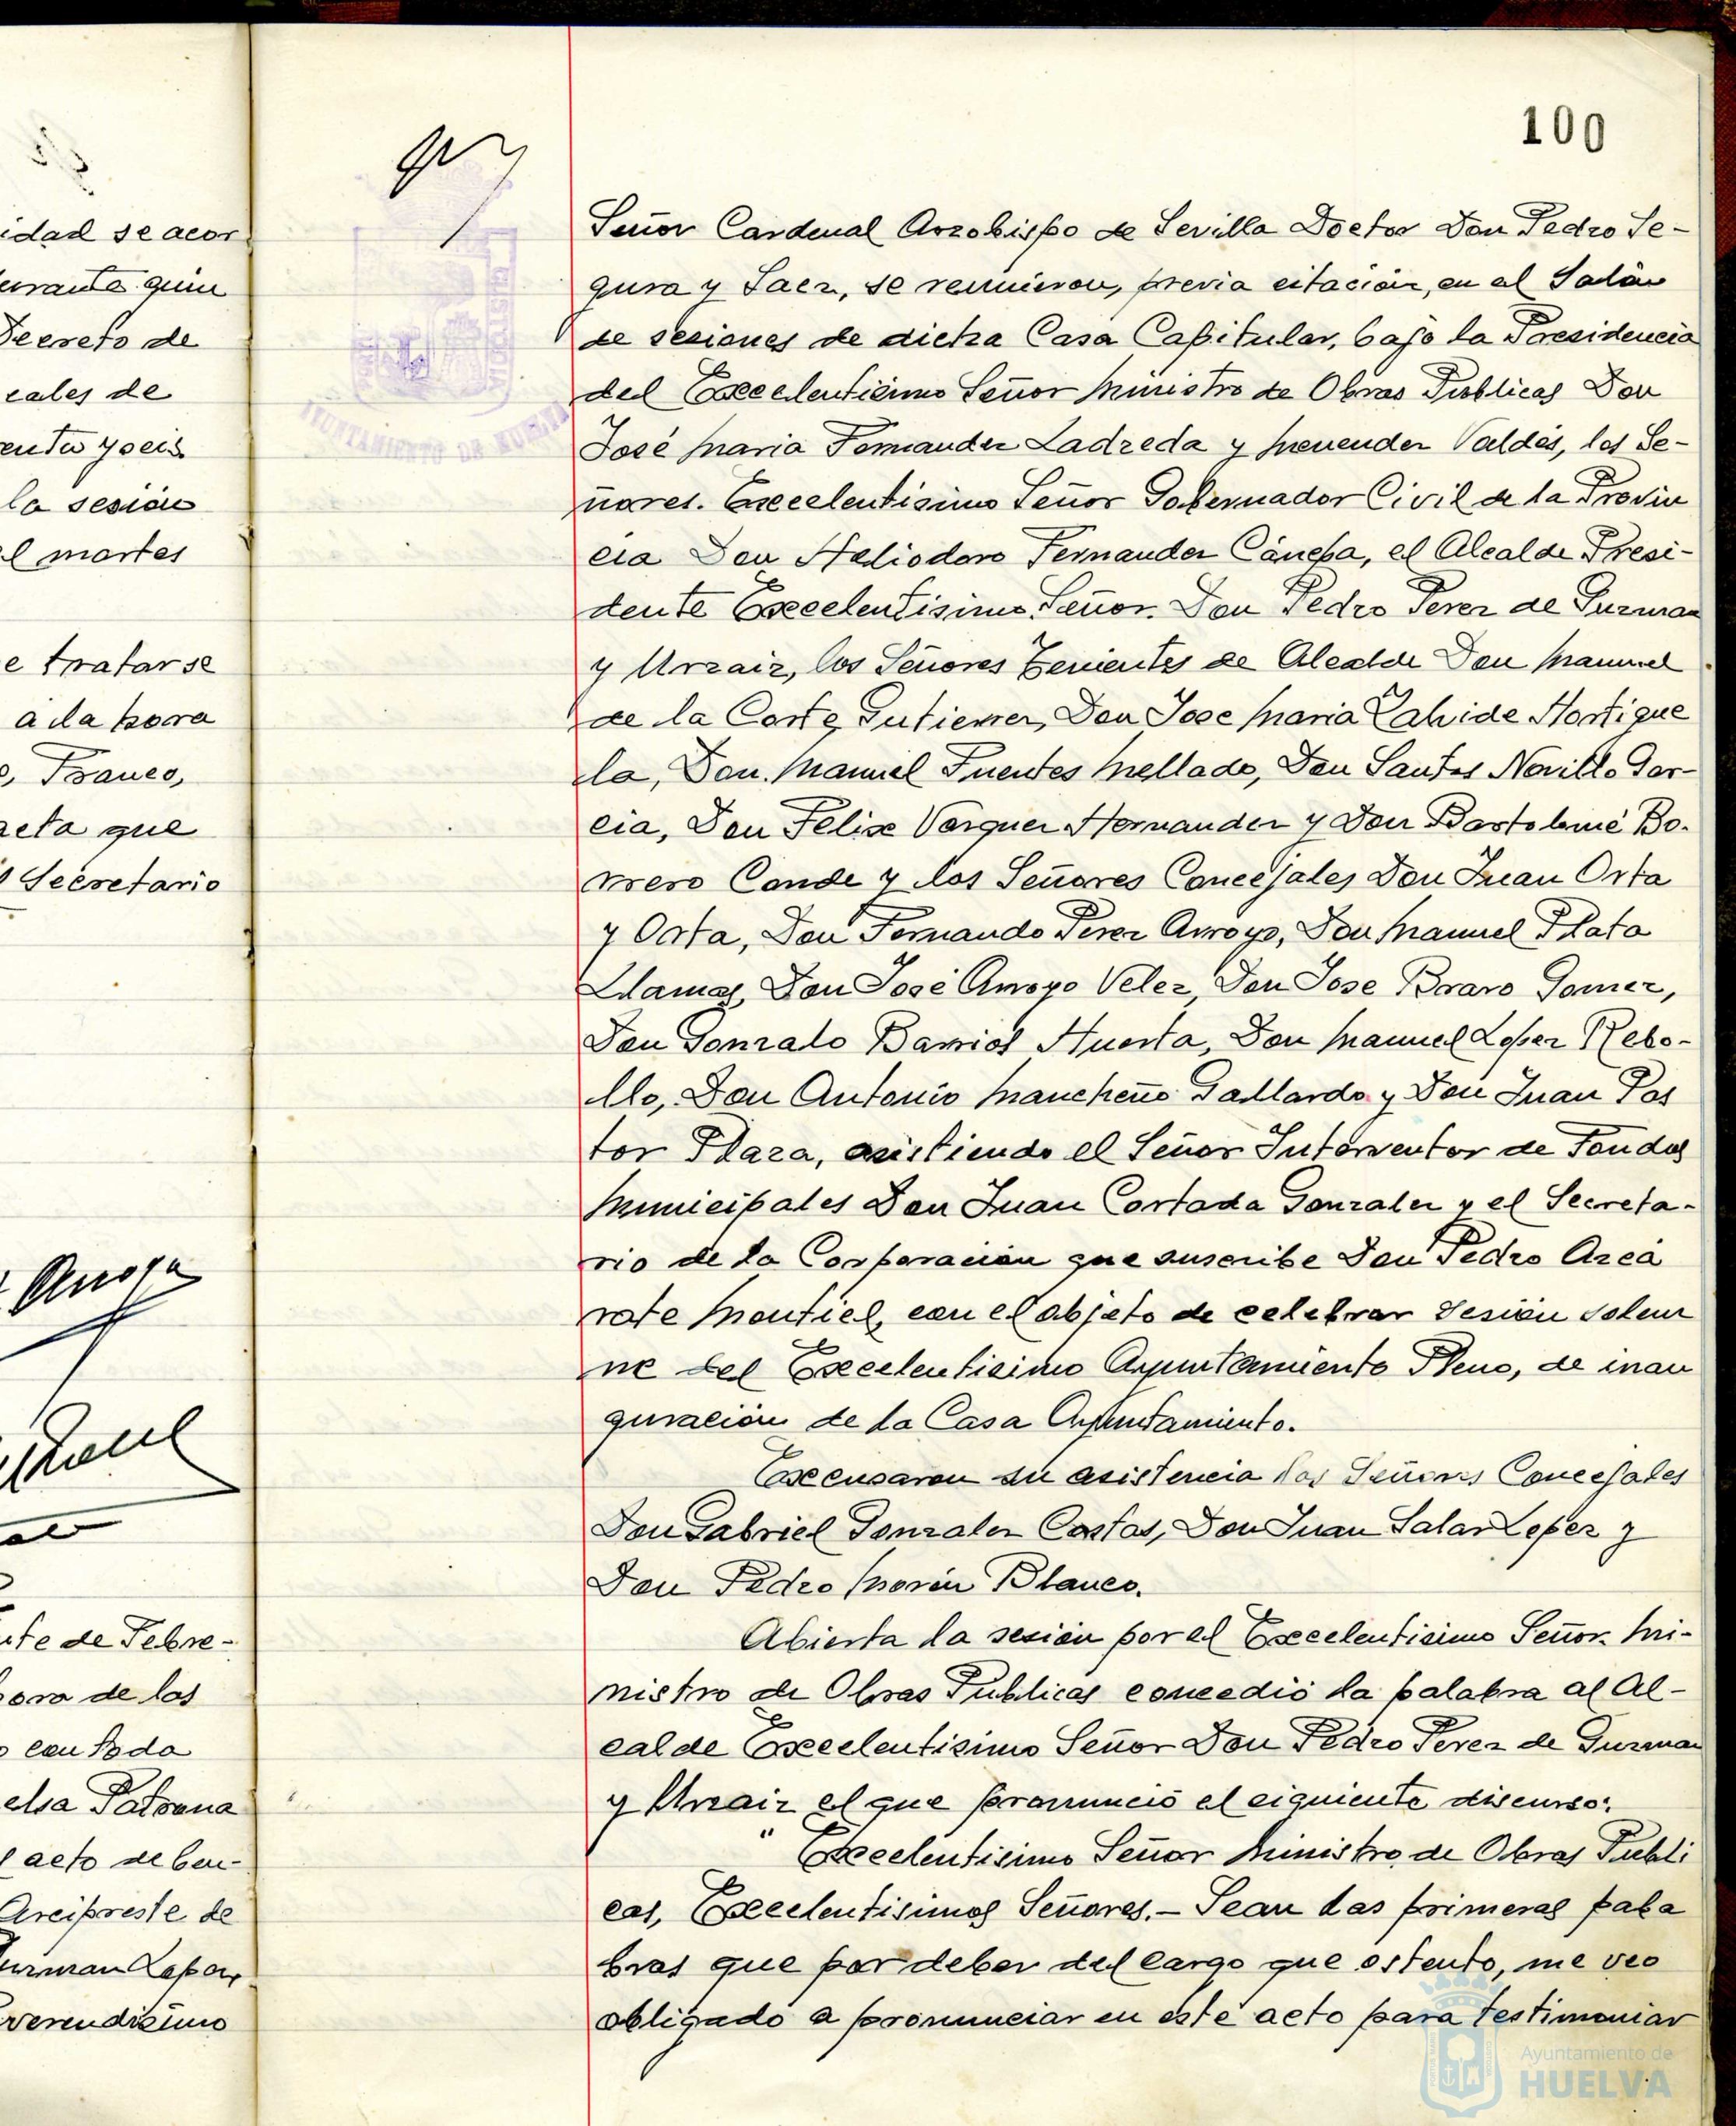 idad se acor
Decreto de
cales de
la sesión
el martes
e tratarse
a la hora
o, Franco,
acta que
Secretario
Arroyo
te de Febre-
hora de los
con toda
elsa Patrona
acto de ben-
Arcipreste de
verendisimo
100
Señor Cardenal Arzobispo de Sevilla Doctor Don Pedro Se-
gura y Saez, se reunieron, previa citación, en el Salón
de sesiones de dicha Casa Capitular, bajo la Presidencia
del Excelentisimo Señor Ministro de Obras Publicas Don
José Maria Fernandez Ladreda y Menendez Valdés, los Se-
ñores. Excelentisimo Señor Gobernador Civil de la Provin
cia Don Heliodoro Fernandez Cánepa, el Alcalde Presi-
dente Excelentisimo Señor. Don Pedro Perez de Guzman
y Urzaiz, los Señores Tenientes de Alcalde Don Manuel
de la Corte Gutierrez, Don Jose Maria Lahide Hortigue
la, Don. Manuel Fuentes Mellado, Don Santos Novillo Gar-
cia, Don Felix Vazquez Hernandez y Don Bartolomé Bo-
rrero Conde y los Señores Concejales Don Juan Orta
y Orta, Don Fernando Perez Arroyo, Don Manuel Plata
Llamas, Don José Arroyo Velez, Don Jose Bravo Gomez,
Don Gonzalo Barrios Huerta, Don Manuel Lopez Rebo-
llo, Don Antonio Mancheño Gallardo y Don Juan Pas
tor Plaza, asistiendo el Señor Interventor de Fondos
Municipales Don Juan Cortada Gonzalez y el Secreta-
rio de la Corporación que suscribe Don Pedro Azca
rate Montiel, con el objeto de celebrar sesión solem
ne del Excelentisimo Ayuntamiento Pleno, de inau
guración de la Casa Ayuntamiento.
Excusaron su asistencia los Señores Concejales
Don Gabriel Gonzalez Costas, Don Juan Salas Lopez y
Don Pedro Morón Blanco.
Abierta la sesión por el Excelentisimo Señor. Mi-
nistro de Obras Publicas concedió la palabra al Al-
calde Excelentisimo Señor Don Pedro Perez de Guzman
y Urzaiz el que pronunció el siguiente discurso:
" Excelentisimo Señor Ministro de Obras Publi
cas, Excelentisimos Señores.- Sean las primeras pala
bras que por deber del cargo que ostento, me veo
obligado a pronunciar en este acto para testimoniar
AYUNTAMIENTO DE HUELVA
Ayuntamiento de
HUELVA